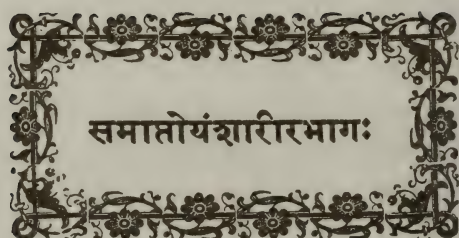 समाप्तोयंशारीरभागः